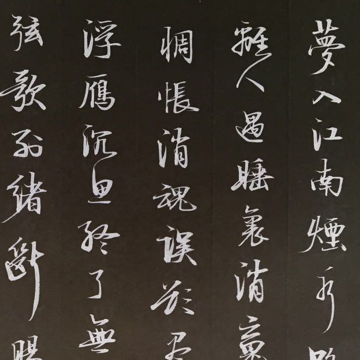 夢入江南煙水路
離人遇睡裏消魂
惆悵消魂誤欲盡
浮鴈沉魚終了無
弦歌別緒斷腸